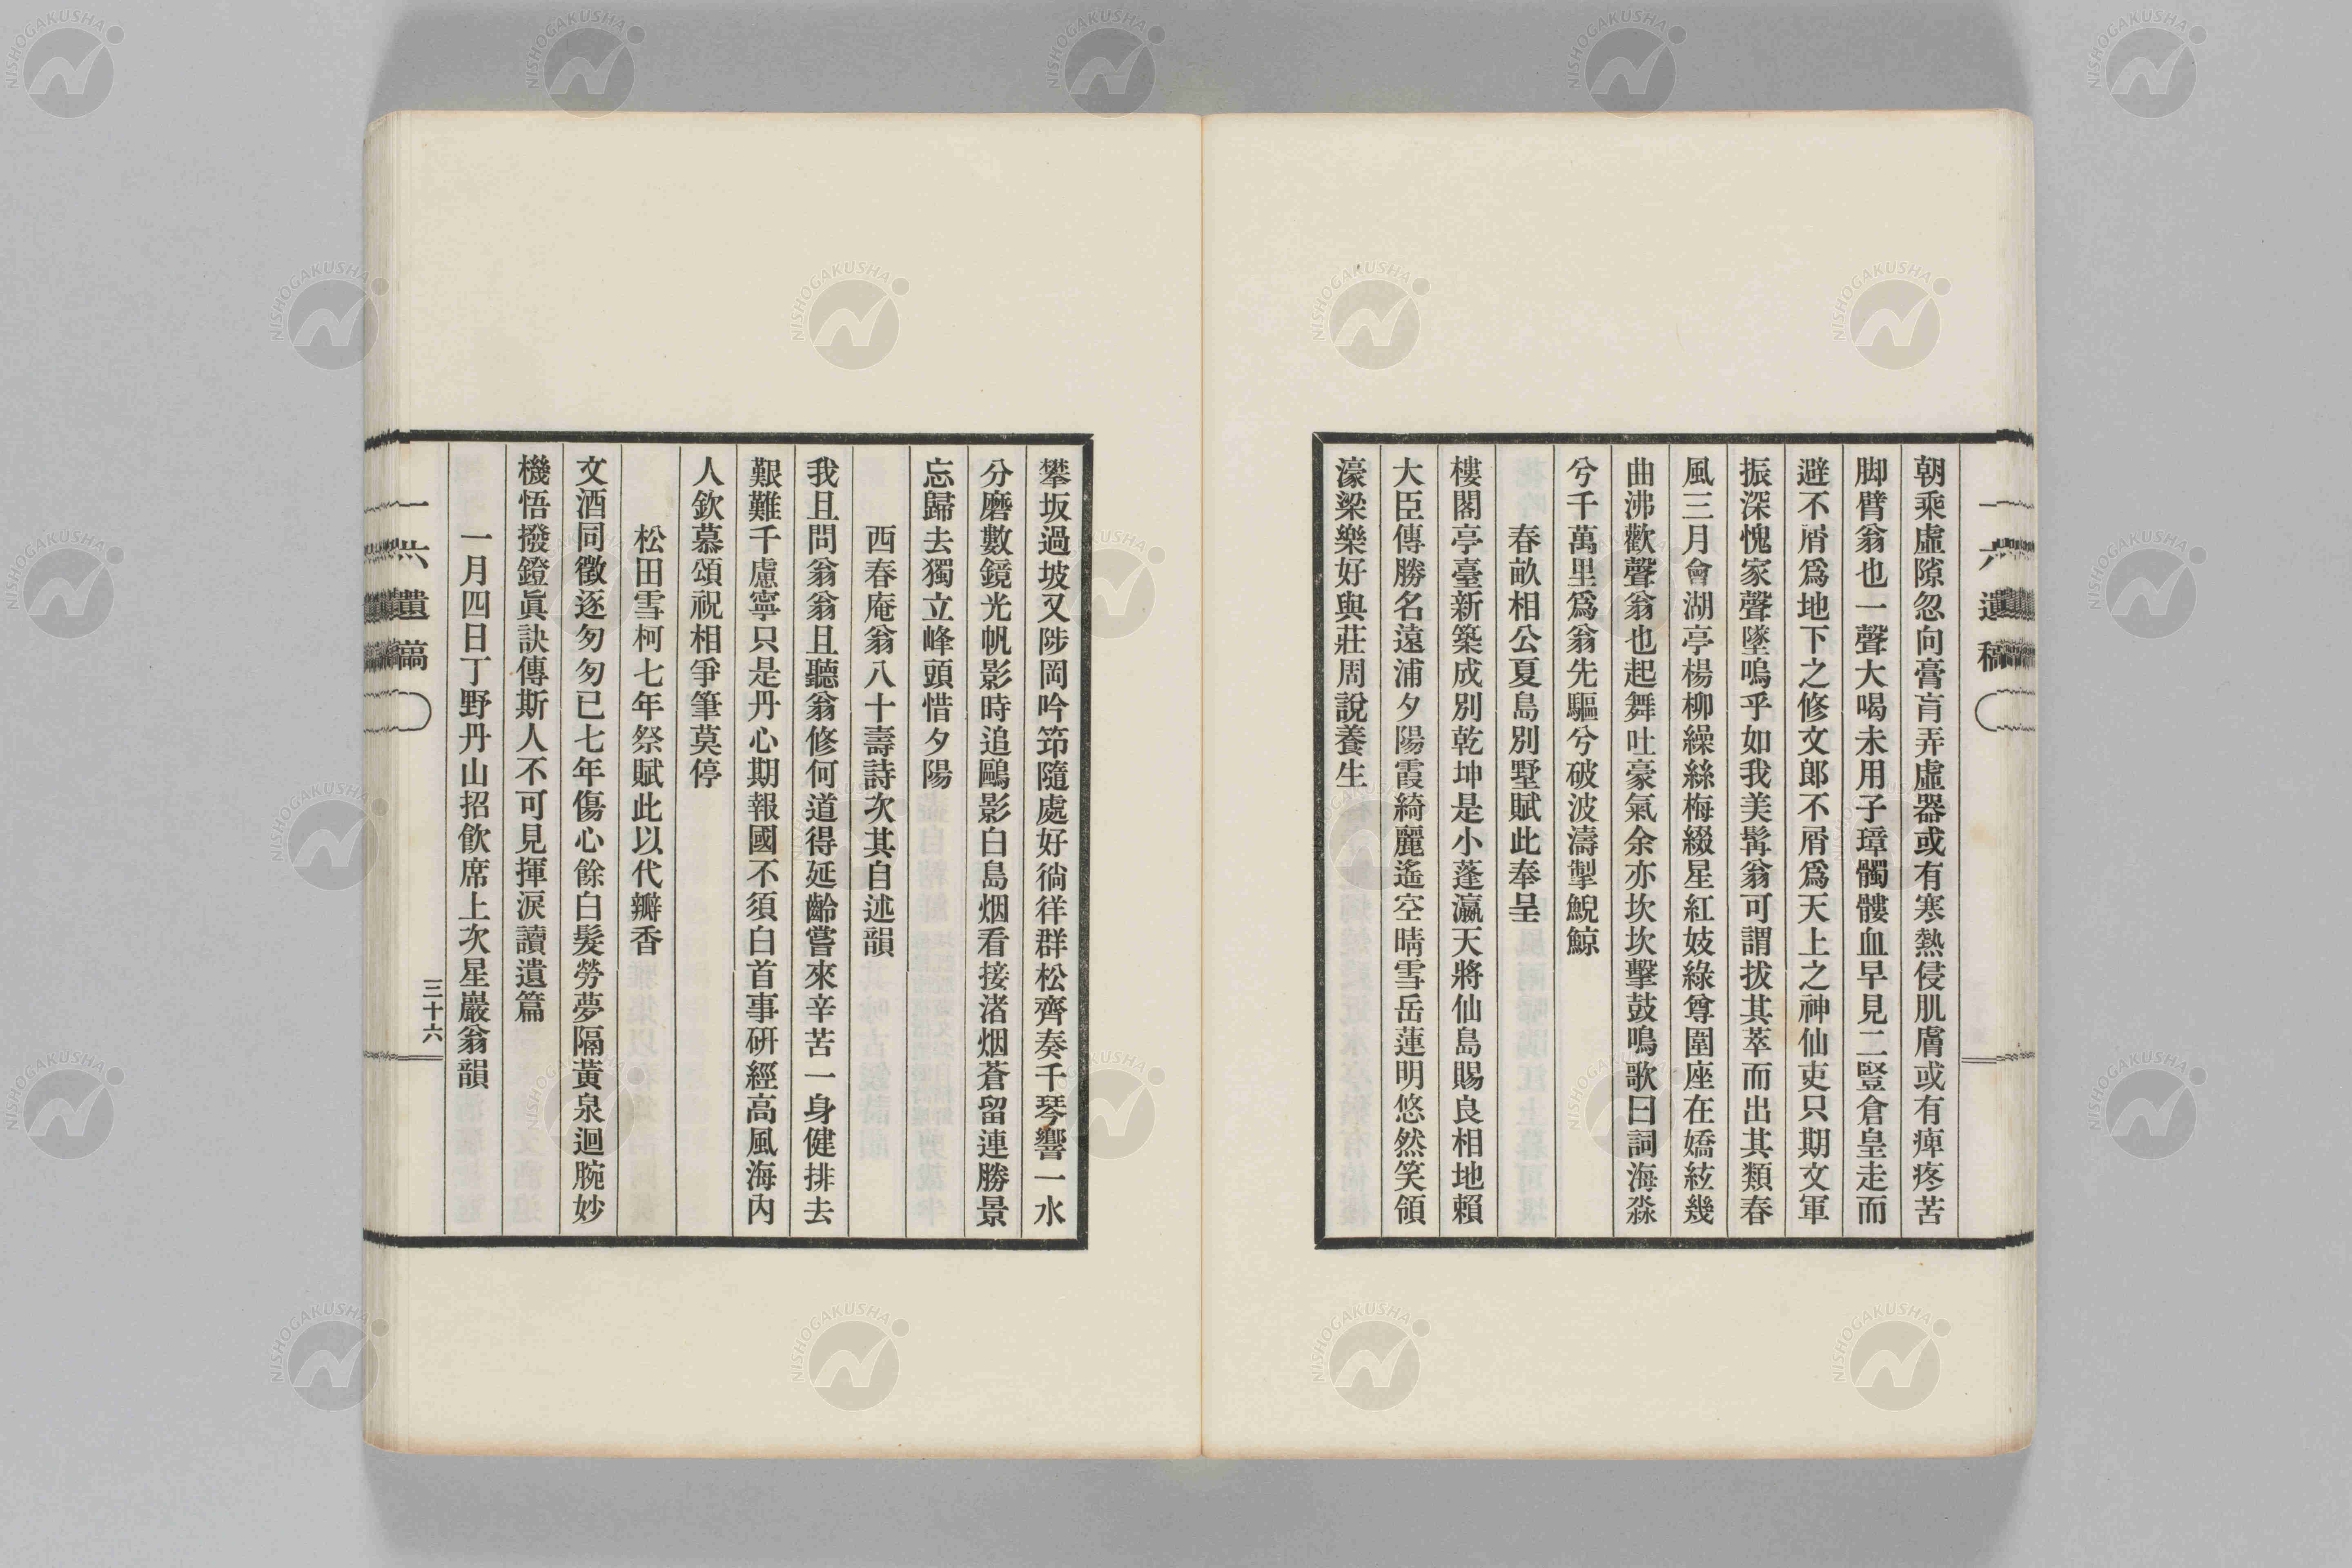 一六遺稿
朝乘虛隙忽向膏肓弄虛器或有寒熱侵肌膚或有痺疼苦
脚臂翁也一聲大喝未用子璋髑髏血早見二豎倉皇走而
避不屑爲地下之修文郎不屑爲天上之神仙吏只期文軍
振深愧家聲墜嗚乎如我美髯翁可謂拔其萃而出其類春
風三月會湖亭楊柳繰絲梅綴星紅妓綠尊圍座在嬌絃幾
曲沸歡聲翁也起舞吐豪氣余亦坎坎擊鼓鳴歌曰詞海淼
兮千萬里爲翁先驅兮破波濤掣鯢鯨
春畝相公夏島別墅賦此奉呈
樓閣亭臺新築成別乾坤是小蓬瀛天將仙島賜良相地賴
大臣傳勝名遠浦夕陽霞綺麗遙空晴雪岳蓮明悠然笑領
濠梁樂好與莊周說養生
攀坂過坡又陟岡吟笻隨處好徜徉群松齊奏千琴響一水
分磨數鏡光帆影時追鷗影白島烟看接渚烟蒼留連勝景
忘歸去獨立峰頭惜夕陽
西春庵翁八十壽詩次其自述韻
我且問翁翁且聽翁修何道得延齡嘗來辛苦一身健排去
艱難千慮寧只是丹心期報國不須白首事硏經高風海內
人欽慕頌祝相爭筆莫停
松田雪柯七年祭賦此以代瓣香
文酒同徵逐匆匆已七年傷心餘白髮勞夢隔黃泉迴腕妙
機悟撥鐙眞訣傳斯人不可見揮淚讀遺篇
一月四日丁野丹山招飮席上次星巖翁韻
一六遺稿
三十六
NISHOGAKUSHA